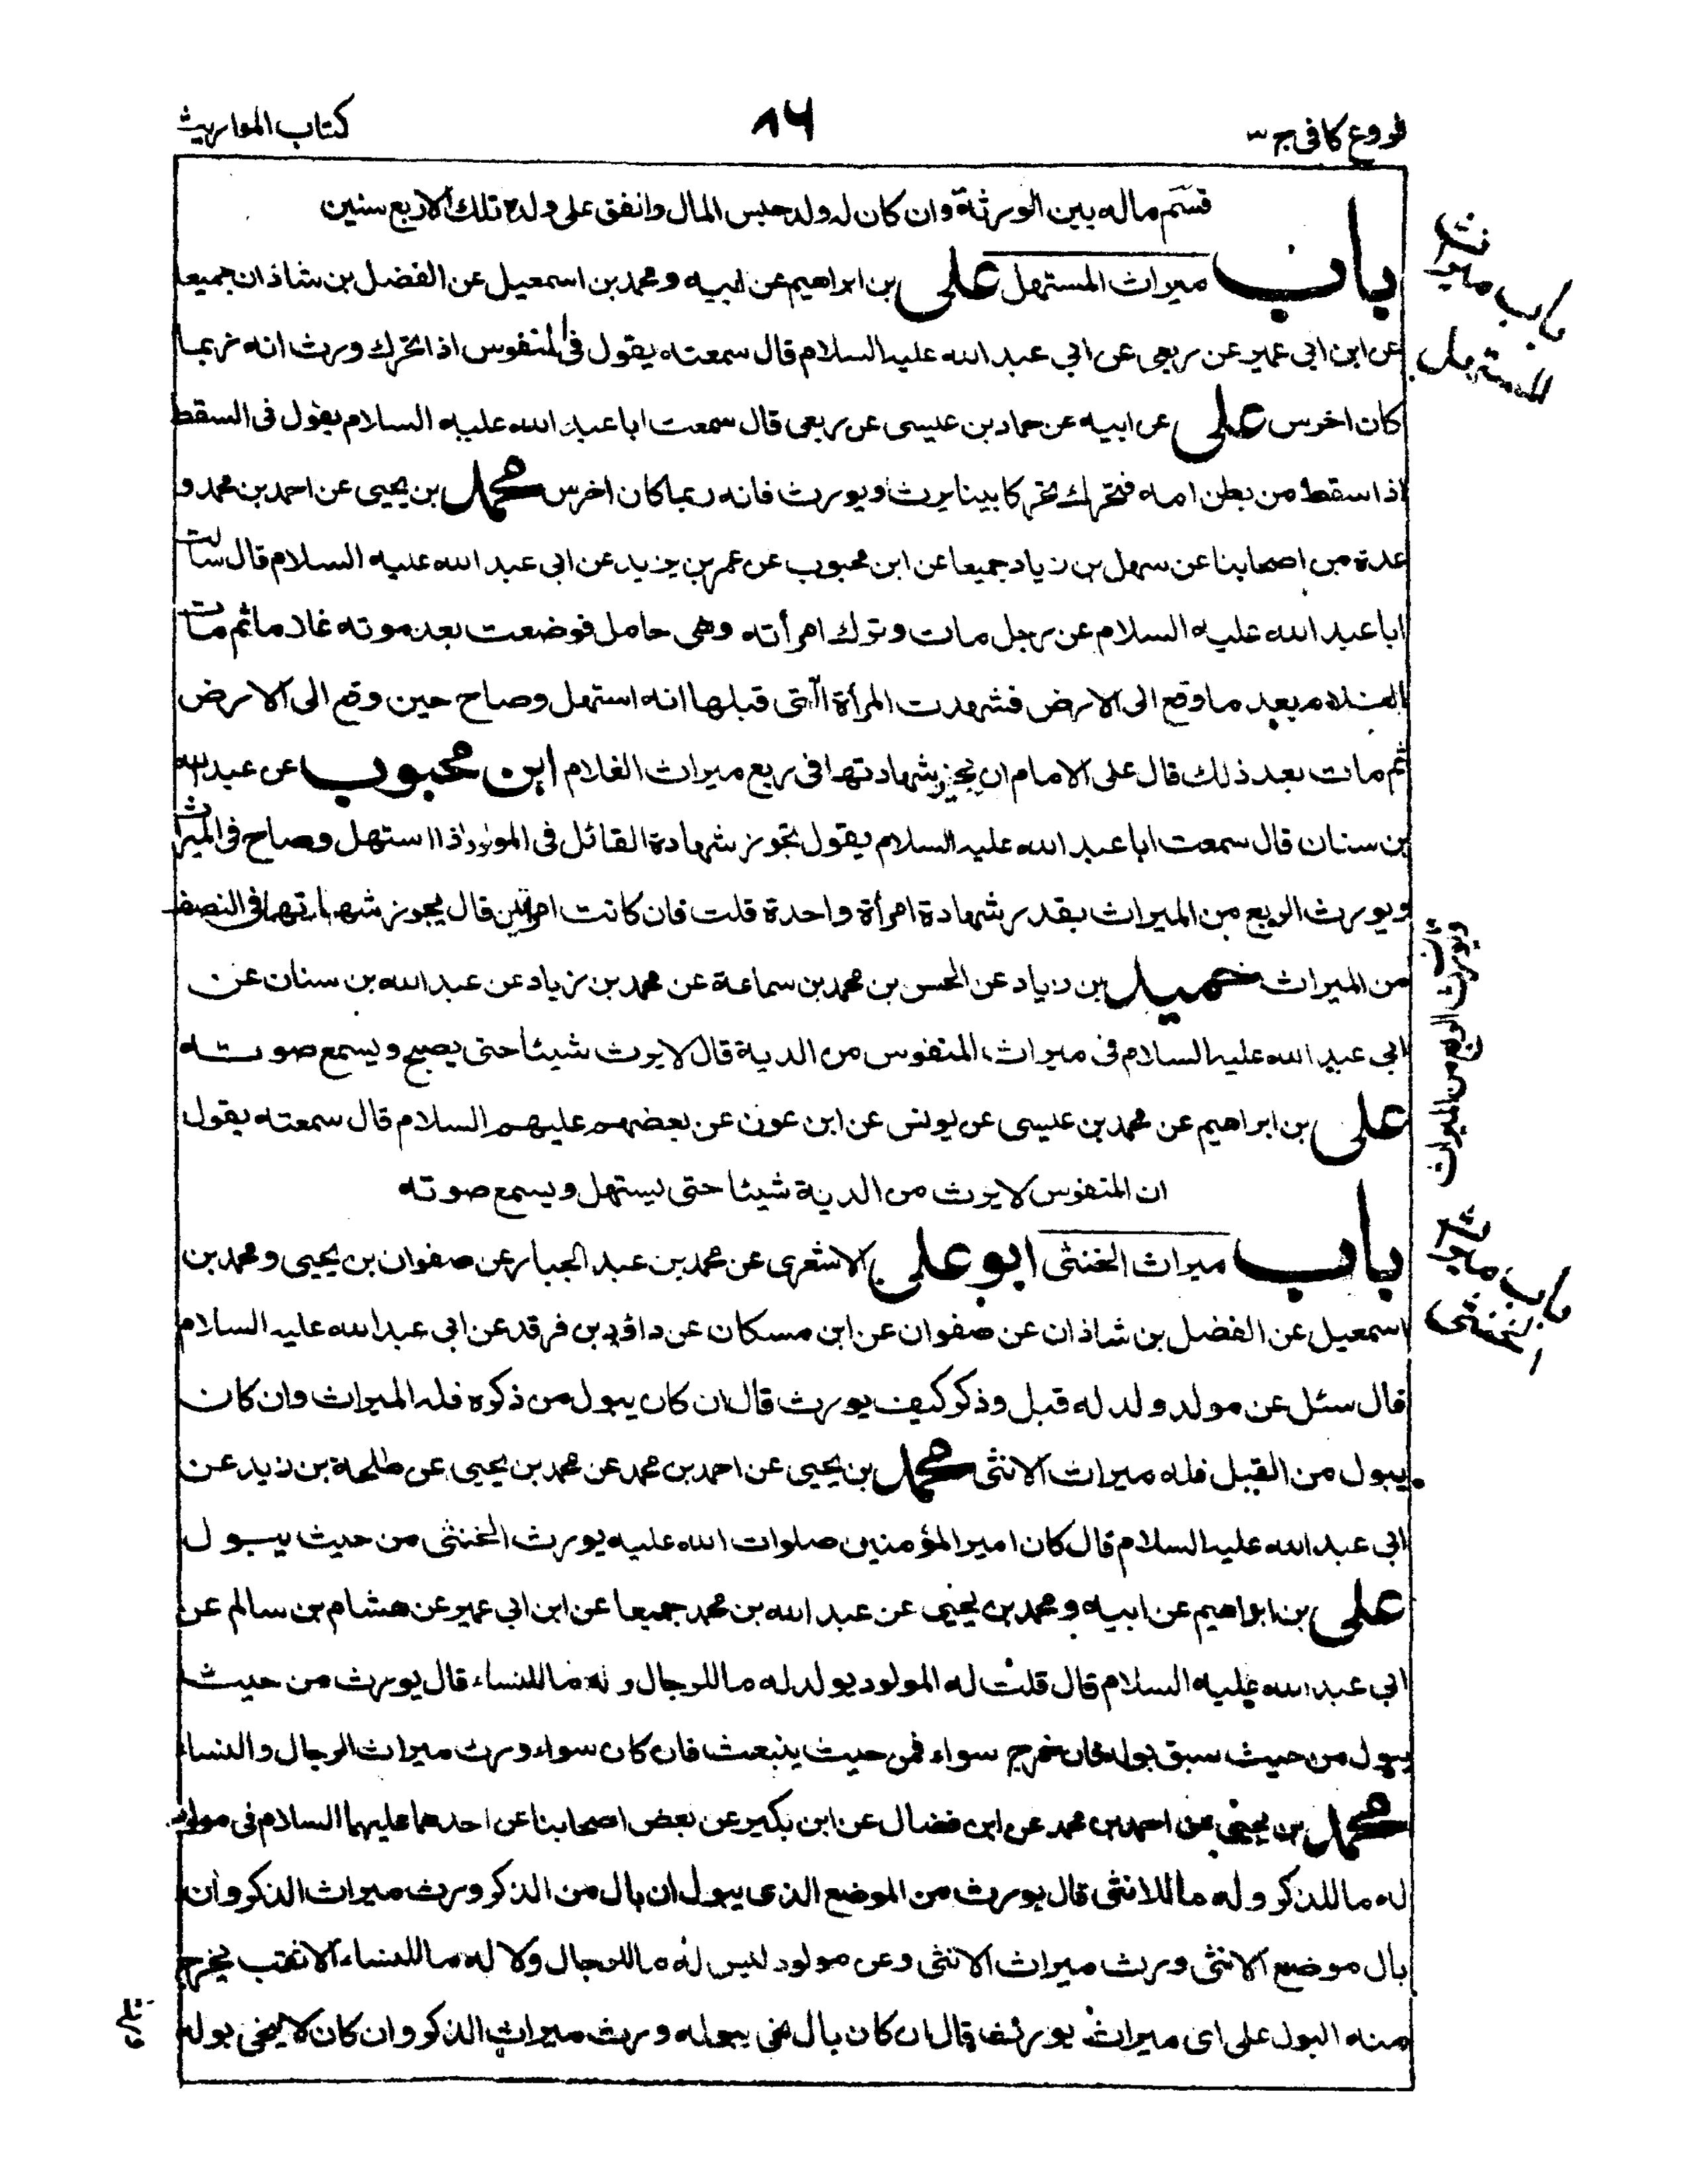 فروع كافى ج ٣
٨٦
كتاب المواريث
قسّم ماله بين الورثة وان كان له ولد حبس المال وانفق على ولده تلك الاربع سنين
باب ميراث المستهل على بن ابراهيم عن ابيه و محمد بن اسمعيل عن الفضل بن شاذان جميعا
عن ابن ابى عمير عن ربعى عن ابى عبد الله عليه السلام قال سمعته يقول فى المنفوس اذا تحرك ورث انه ربما
كان اخرس على عن ابيه عن حماد بن عيسى عن ربعى قال سمعت ابا عبد الله عليه السلام يقول فى السقط
اذا سقط من بطن امه فتحرك تحركا بينا يرث ويورث فانه ربما كان اخرس محمد بن يحيى عن احمد بن محمد و
عدة من اصحابنا عن سهل بن زياد جميعا عن ابن محبوب عن عمر بن يزيد عن ابى عبد الله عليه السلام قال سالت
ابا عبد الله عليه السلام عن رجل مات وترك امرأته وهى حامل فوضعت بعد موته غلاما ثم مات
الغلام بعد ما وقع الى الارض فشهدت المرأة التى قبلها انه استهل وصاح حين وقع الى الارض
ثم مات بعد ذلك قال على الامام ان يجيز شهادتها فى ربع ميراث الغلام ابن محبوب عن عبد الله
بن سنان قال سمعت ابا عبد الله عليه السلام يقول تجوز شهادة القائل فى المولود اذا استهل وصاح فى الميراث
ويورث الربع من الميراث بقدر شهادة امرأة واحدة قلت فان كانت امرأتين قال يجوز شهادتهما فى النصف
من الميراث حميد بن زياد عن الحسن بن محمد بن سماعة عن محمد بن زياد عن عبد الله بن سنان عن
ابى عبد الله عليه السلام فى ميراث المنفوس من الدية قال لا يرث شيئا حتى يصيح ويسمع صوته
على بن ابراهيم عن محمد بن عيسى عن يونس عن ابن عون عن بعضهم عليهم السلام قال سمعته يقول
ان المنفوس لا يرث من الدية شيئا حتى يستهل ويسمع صوته
باب ميراث الخنثى ابو على الاشعرى عن محمد بن عبد الجبار عن صفوان بن يحيى ومحمد بن
اسمعيل عن الفضل بن شاذان عن صفوان عن ابن مسكان عن داؤد بن فرقد عن ابى عبد الله عليه السلام
قال سئل عن مولد ولد له قبل وذكر كيف يورث قال ان كان يبول من ذكره فله الميراث وان كان
يبول من القبل فله ميراث الانثى محمد بن يحيى عن احمد بن محمد عن محمد بن يحيى عن طلحة بن زيد عن
ابى عبد الله عليه السلام قال كان امير المؤمنين صلوات الله عليه يورث الخنثى من حيث يبول
على بن ابراهيم عن ابيه و محمد بن يحيى عن عبد الله بن محمد جميعا عن ابن ابى عمير عن هشام بن سالم عن
ابى عبد الله عليه السلام قال قلت له المولود يولد له ما للرجال و له ما للنساء قال يورث من حيث
يبول من حيث سبق بوله فان خرج سواء فمن حيث ينبعث فان كان سواء ورث ميراث الرجال والنساء
محمد بن يحيى عن احمد بن محمد عن ابن فضال عن ابن بكير عن بعض اصحابنا عن احدهما عليهما السلام فى مولود
له ما للذكر وله ما للانثى قال يورث من الموضع الذى يبول ان بال من الذكر ورث ميراث الذكر وان
بال موضع الانثى ورث ميراث الانثى وعن مولود ليس له ما للرجال ولا له ما للنساء الا نقب يخرج
منه البول على اى ميراث يورث قال ان كان بال نحى ببوله ورث ميراث الذكر وان كان لا ينحى بوله
باب ميراث
المستهل
ويورث الربع من الميراث
باب ميراث
الخنثى